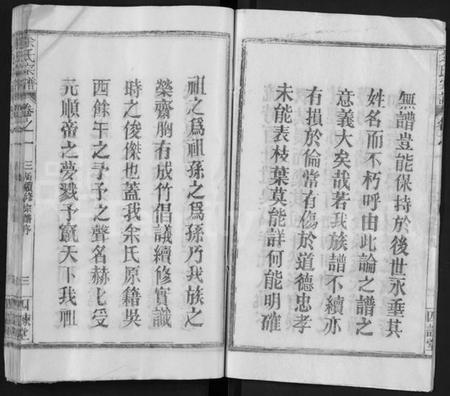 無譜豈能保持於後世永垂其
姓名而不朽呼由此論之譜之
意義大矣哉若我族譜不續亦
有損於倫常有傷於道德忠孝
未能表枝葉莫能詳何能明確
祖之爲祖孫之爲孫乃我族之
榮齋胸有成竹倡議續修實識
時之俊傑也蓋我余氏原籍吳
西餘干之予予之聲名赫赫受
元順帝之夢戮予竄天下我祖
余氏宗譜
卷之一
三
四諫堂